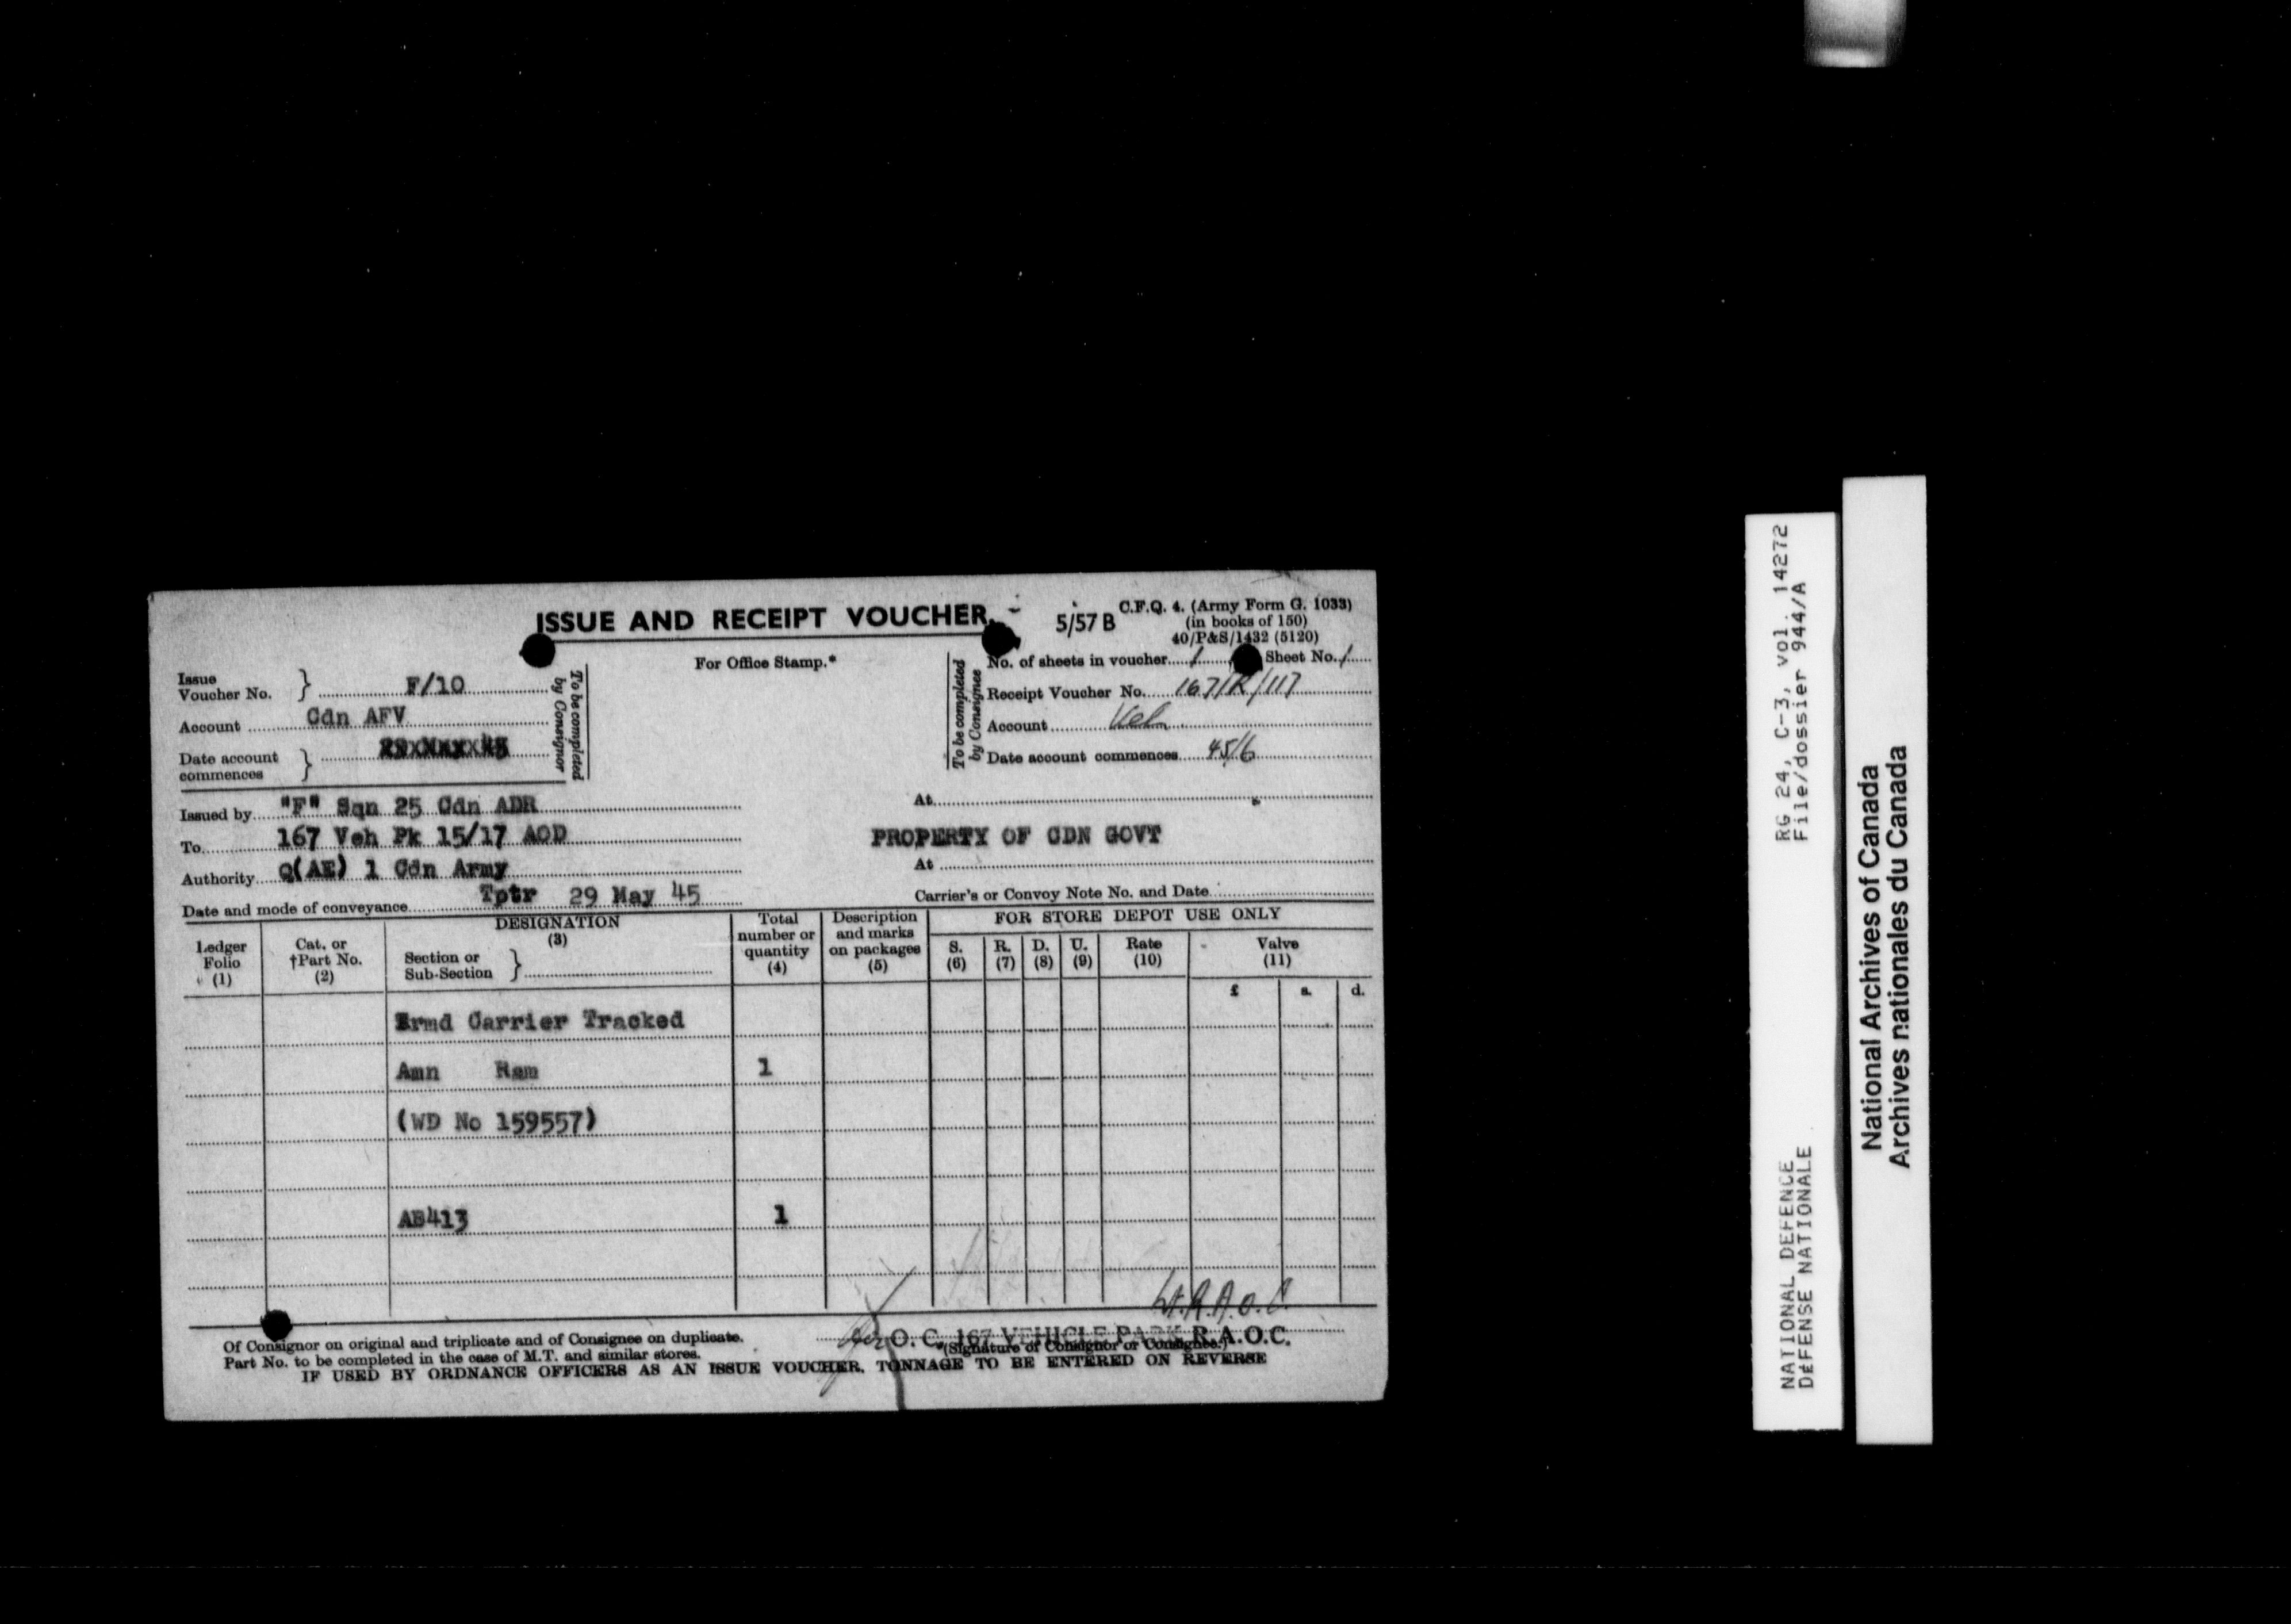 ISSUE AND RECEIPT VOUCHER.
5/57 B
C.F.Q. 4. (Army Form G. 1033)
(in books of 150)
40/P&S/1432 (5120)
For Office Stamp.*
No. of sheets in voucher 1 Sheet No. 1
Issue
Voucher No. } F/10
To be completed
by Consignor
To be completed
by Consignee
Receipt Voucher No. 167/R/117
Account Cdn AFV
Account
Date account
commences }
Date account commences 45/6
Issued by "F" Sqn 25 Cdn ADR
At
To 167 Veh Pk 15/17 AOD
PROPERTY OF CDN GOVT
Authority Q(AE) 1 Cdn Army
At
Date and mode of conveyance Tptr 29 May 45
Carrier's or Convoy Note No. and Date
Ledger
Folio
(1)
Cat. or
†Part No.
(2)
DESIGNATION
(3)
Section or
Sub-Section }
Total
number or
quantity
(4)
Description
and marks
on packages
(5)
FOR STORE DEPOT USE ONLY
S.
(6)
R.
(7)
D.
(8)
U.
(9)
Rate
(10)
Valve
(11)
£ s. d.
Armd Carrier Tracked
Amn Ram 1
(WD No 159557)
AB413 1
Lt. R.A.O.C.
for O. C. 167 VEHICLE PARK R.A.O.C.
(Signature of Consignor or Consignee.)
Of Consignor on original and triplicate and of Consignee on duplicate.
Part No. to be completed in the case of M.T. and similar stores.
IF USED BY ORDNANCE OFFICERS AS AN ISSUE VOUCHER, TONNAGE TO BE ENTERED ON REVERSE
RG 24, C-3, vol. 14272
File/dossier 944/A
NATIONAL DEFENCE
DéFENSE NATIONALE
National Archives of Canada
Archives nationales du Canada